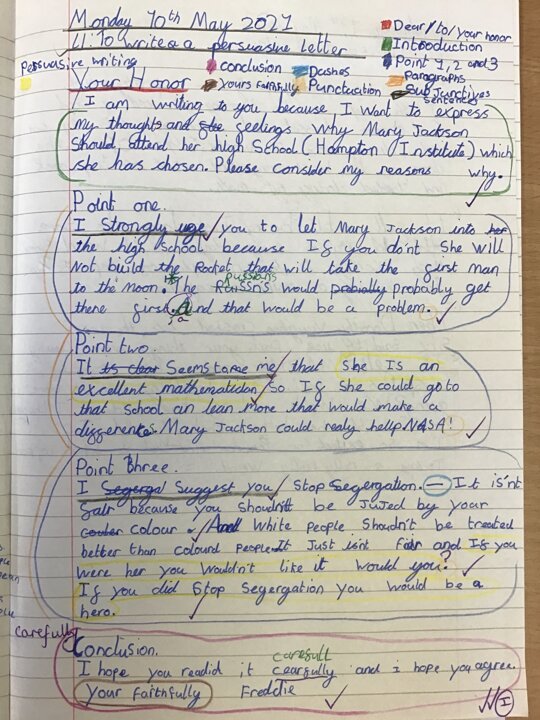 Monday 10th May 2021
LI: To write a persuasive letter
Persuasive writing
Dear/to/your honor
Introduction
Point 1, 2 and 3
Paragraphs
Subjunctives
sentences
conclusion
yours faithfully
Dashes
Punctuation
Your Honor
I am writing to you because I want to express
my thoughts and feelings why Mary Jackson
should attend her high School (Hampton Institute) which
she has chosen. Please consider my reasons why.
Point one.
I Strongly uge you to let Mary Jackson into her
the high school because If you do'nt She will
Not build the Rocket that will take the first man
to the moon. The Raissn's would probially probably get
russians
there first. And that would be a problem.
a
Point two.
It its clear Seems to me me that She Is an
excellent mathematician So If She could go to
that school an lean more that would make a
differentes. Mary Jackson could realy hellp NASA!
Point three.
I Segergd Suggest you Stop Segergation. — It is'nt
fair because you shouldn't be Jujed by your
couler colour. And White people Shouldn't be treated
better than colourd people. It Just isn't fair and If you
were her you Wouldn't like it would you?
If you did Stop Segergation you would be a
hero.
carefully
Conclusion.
carefull
I hope you readid it cearfully and i hope you agree.
your faithfully Freddie
I